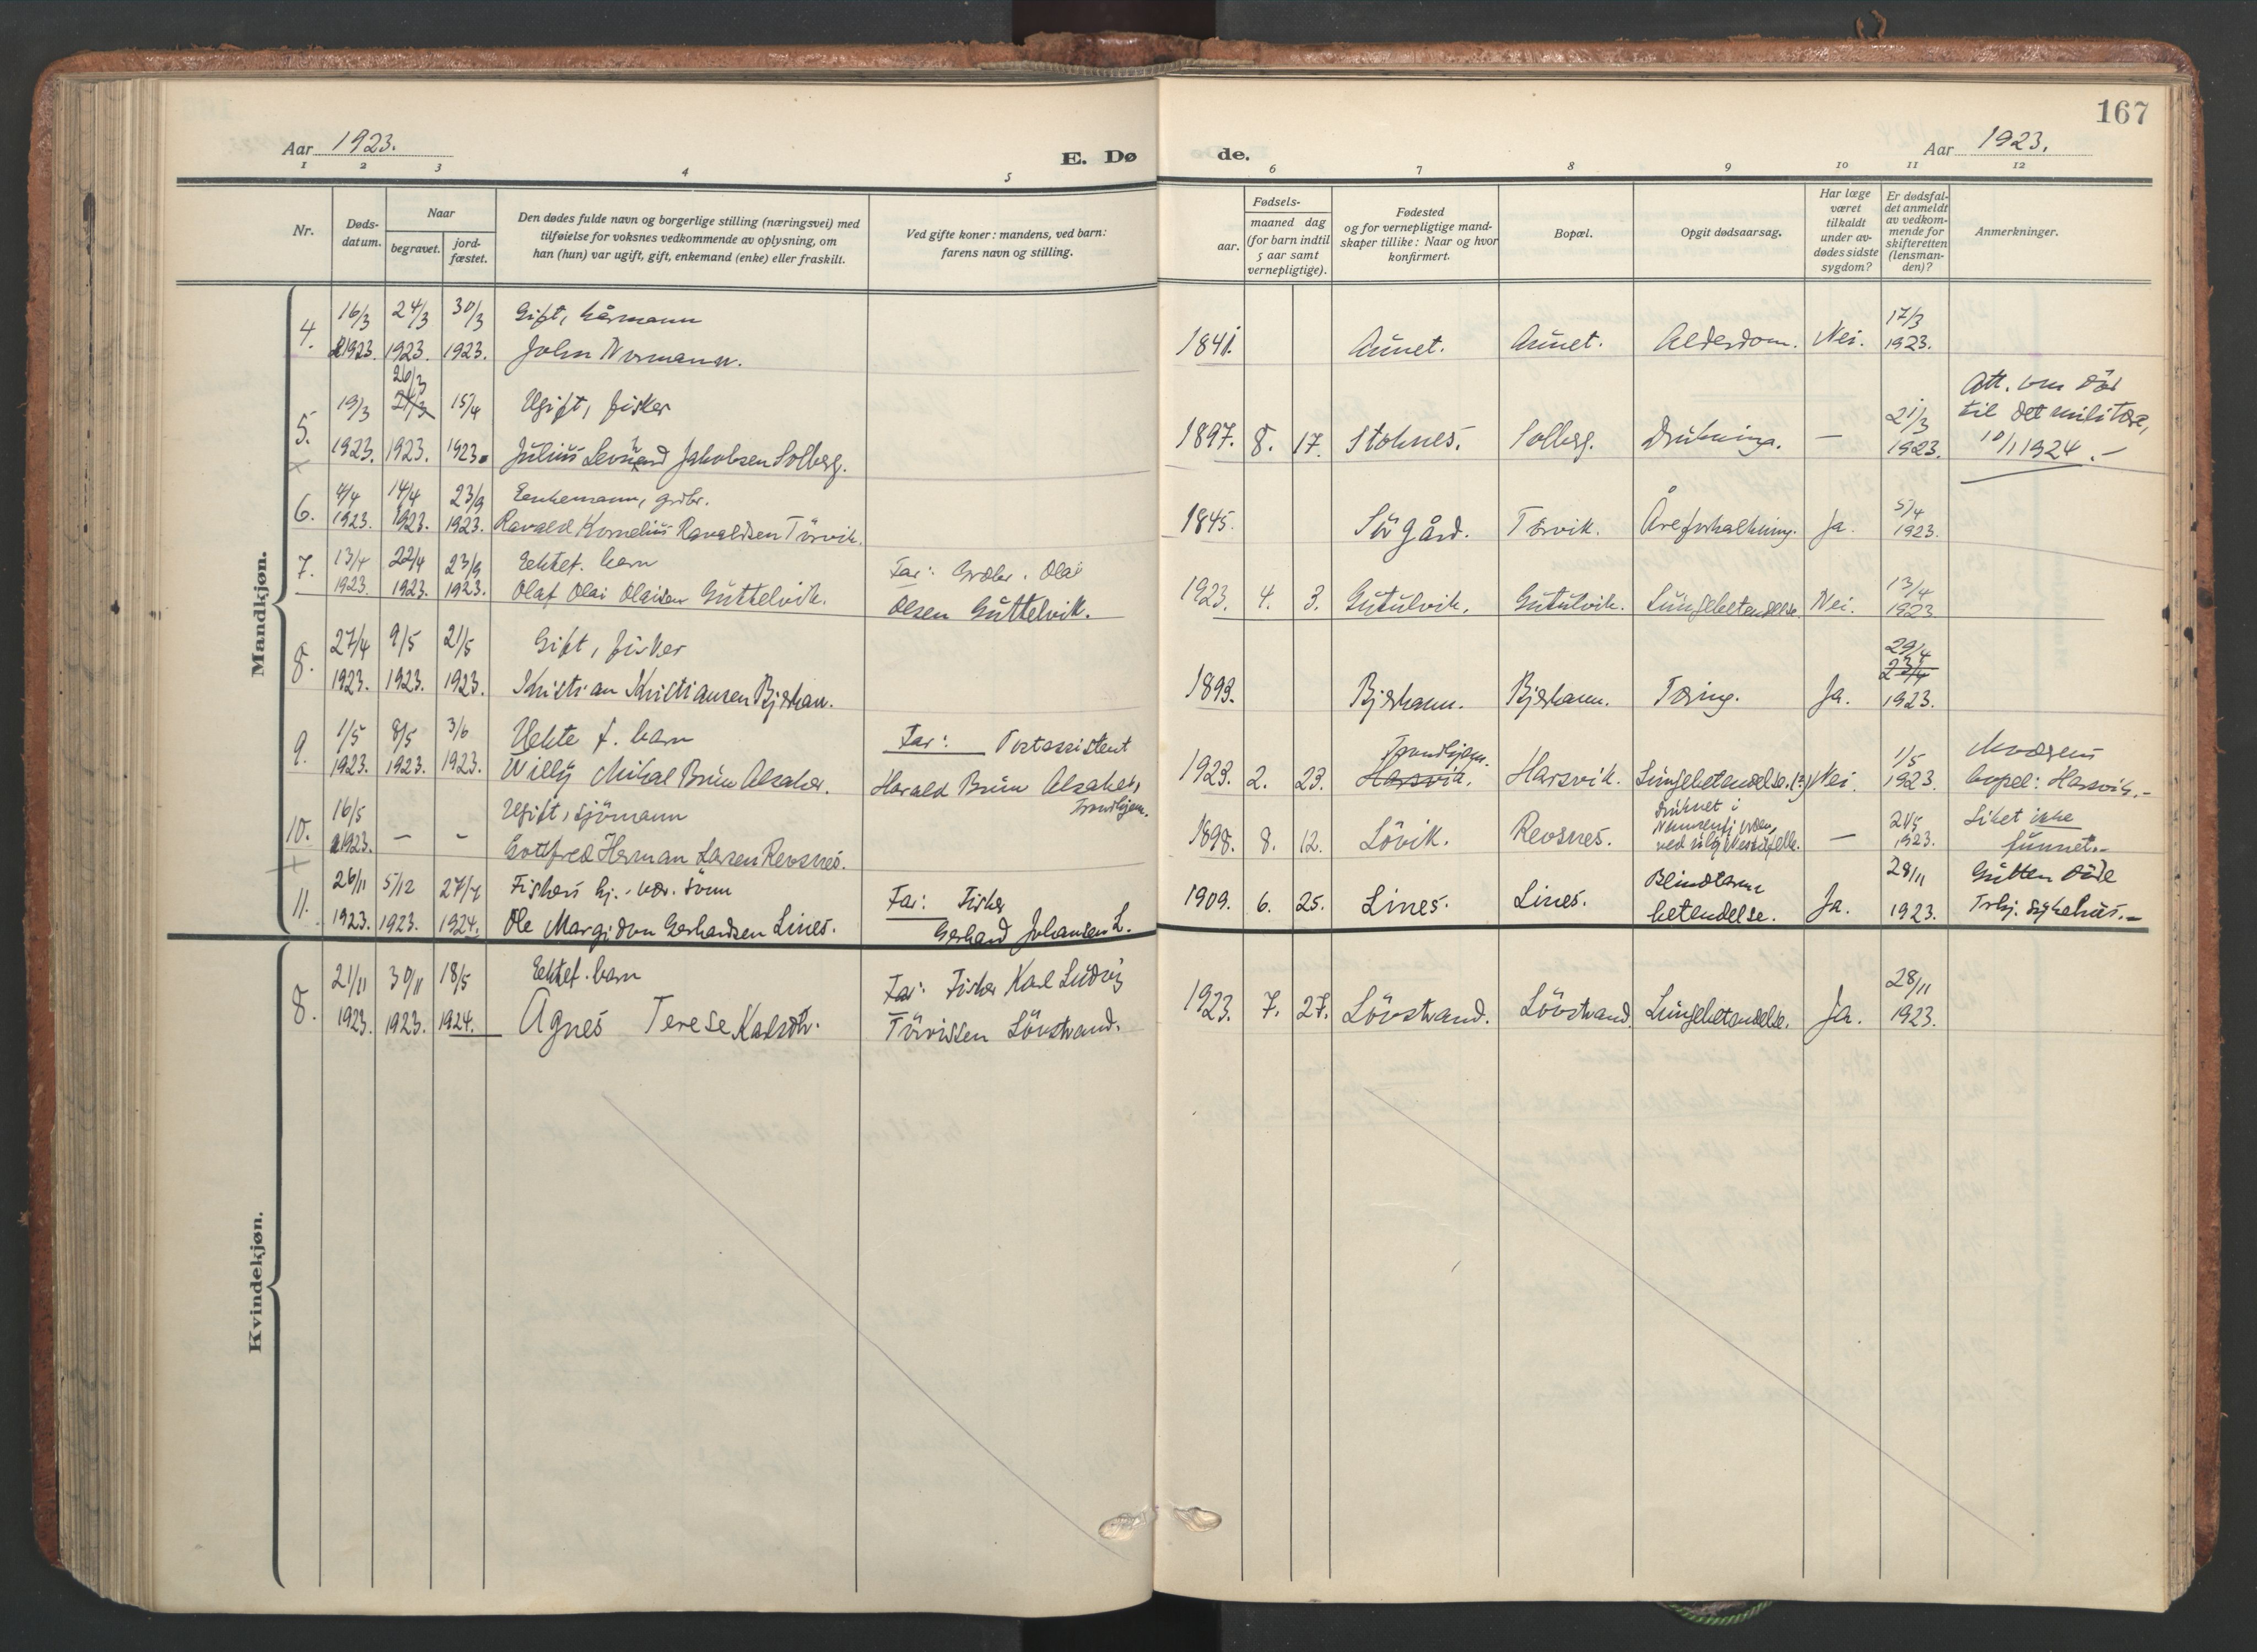 167
Aar 1923.
E. Dø
de.
Aar 1923.
1 2 3 4 5 6 7 8 9 10 11 12
Nr.
Døds-
datum.
Naar
begravet.
jord-
fæstet.
Den dødes fulde navn og borgerlige stilling (næringsvei) med
tilføielse for voksnes vedkommende av oplysning, om
han (hun) var ugift, gift, enkemand (enke) eller fraskilt.
Ved gifte koner: mandens, ved barn:
farens navn og stilling.
Fødsels-
aar.
maaned dag
(for barn indtil
5 aar samt
vernepligtige).
Fødested
og for vernepligtige mand-
skaper tillike: Naar og hvor
konfirmert.
Bopæl.
Opgit dødsaarsag.
Har læge
været
tilkaldt
under av-
dødes sidste
sygdom?
Er dødsfal-
det anmeldt
av vedkom-
mende for
skifteretten
(lensman-
den)?
Anmerkninger.
Mandkjøn.
16/3 24/3 30/3 Gift, kårmann 17/3
4. 1923. 1923. 1923. John Normann. 1841. Aunet. Aunet. Alderdom. Nei. 1923.
26/3 Att. om död
19/3 24/3 15/4 Ugift, fisker 21/3 til det militære,
5. 1923. 1923. 1923. Julius Jakobsen Solberg. 1897. 8. 17. Stoknes. Solberg. Drukning. — 1923. 10/1 1924.-
4/4 14/4 23/9 Enkemann, grdbr. 5/4
6. 1923. 1923. 1923. Ravald Kornelius Ravaldsen Törvik. 1845. Sörgård. Törvik. Åreforkalkning. Ja. 1923.
13/4 22/4 23/9 Ektef. barn Far: Grdbr. Olai 13/4
7. 1923. 1923. 1923. Olaf Olai Olaisen Guttelvik. Olsen Guttelvik. 1923. 4. 3. Gutulvik. Gutulvik. Lungebetendelse. Nei. 1923.
27/4 9/5 21/5 Gift, fisker 29/4
8. 1923. 1923. 1923. Kristian Kristiansen Bjørhan. 1893. Bjørhamn. Bjørhamn. Tæring. Ja. 1923.
1/5 8/5 3/6 Uekte f. barn Far: Postassistent Trondhjem. 1/5 Moderens
9. 1923. 1923. 1923. Willy Mikal Bruun Alsaker. Harald Bruun Alsaker, Trondhjem. 1923. 2. 23. Harsvik. Harsvik. Lungebetendelse. (?) Nei. 1923. bopel: Harsvik.-
16/5 Ugift, sjömann Druknet i
10. 1923. — - Gottfred Herman Larsen Revsnes. 1898. 8. 12. Lövik. Revsnes. — 1923. Liket ikke
funnet.-
26/11 5/12 27/4 Fiskers hj. vær. sönn Far: Fisker Blindtarm 28/11 Gutten döde
11. 1923. 1923. 1924. Ole Margidon Gerhardsen Lines. Gerhard Johansen L. 1909. 6. 25. Lines. Lines. betendelse. Ja. 1923. Trhj. sykehus.-
Kvindekjøn.
21/11 30/11 18/5 Ektef. barn Far: Fisker Karl Ludvig 28/11
8. 1923. 1923. 1924. Agnes Terese Karlsdtr. Törrissen Lövstrand. 1923. 7. 27. Lövstrand. Lövstrand. Lungebetendelse. Ja. 1923.